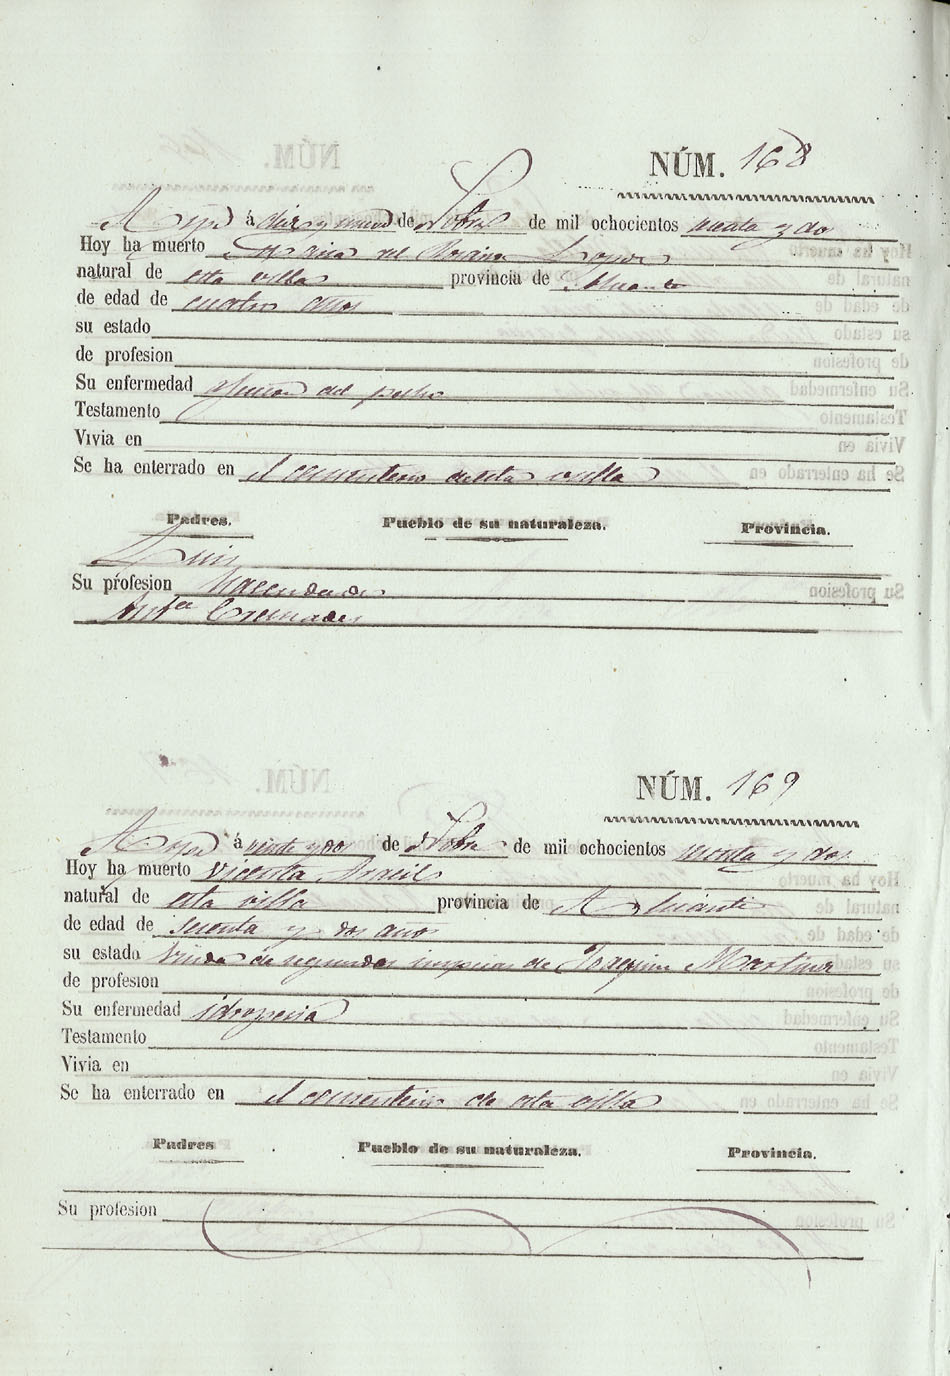 NÚM. 168
á diez y nueve de Nbre de mil ochocientos
Hoy ha muerto Maria del Rosario Lopez
natural de esta villa provincia de Alicante
de edad de cuatro años
su estado
de profesion
Su enfermedad afeccion del pecho
Testamento
Vivia en
Se ha enterrado en el cementerio de esta villa
Padres. Pueblo de su naturaleza. Provincia.
Luis
Su profesion hacendado
Cremades
NÚM. 169
á veinte y dos de Nbre de mil ochocientos
Hoy ha muerto Vicenta
natural de esta villa provincia de Alicante
de edad de y dos años
su estado Viuda de segundas nupcias de Joaquin Martinez
de profesion
Su enfermedad idropesia
Testamento
Vivia en
Se ha enterrado en el cementerio de esta villa
Padres Pueblo de su naturaleza. Provincia.
Su profesion